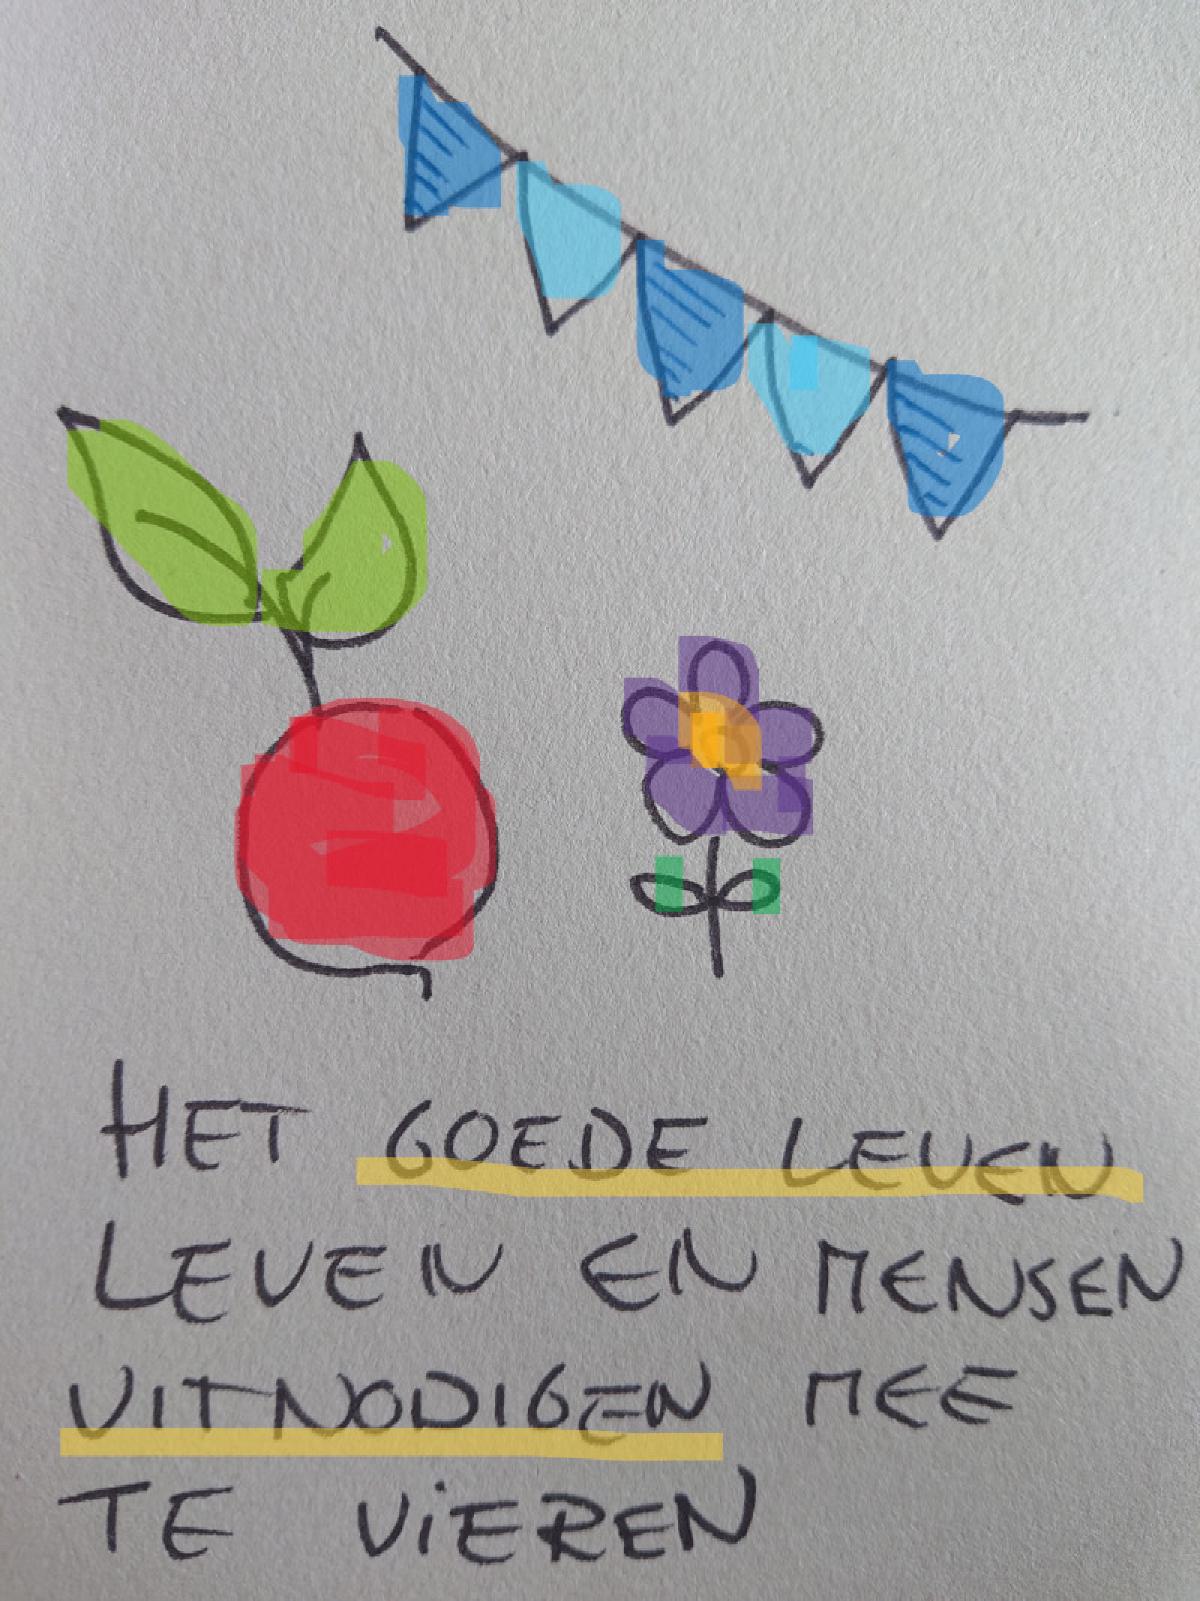 HET GOEDE LEVEN
LEVEN EN MENSEN
UITNODIGEN MEE
TE ViEREN